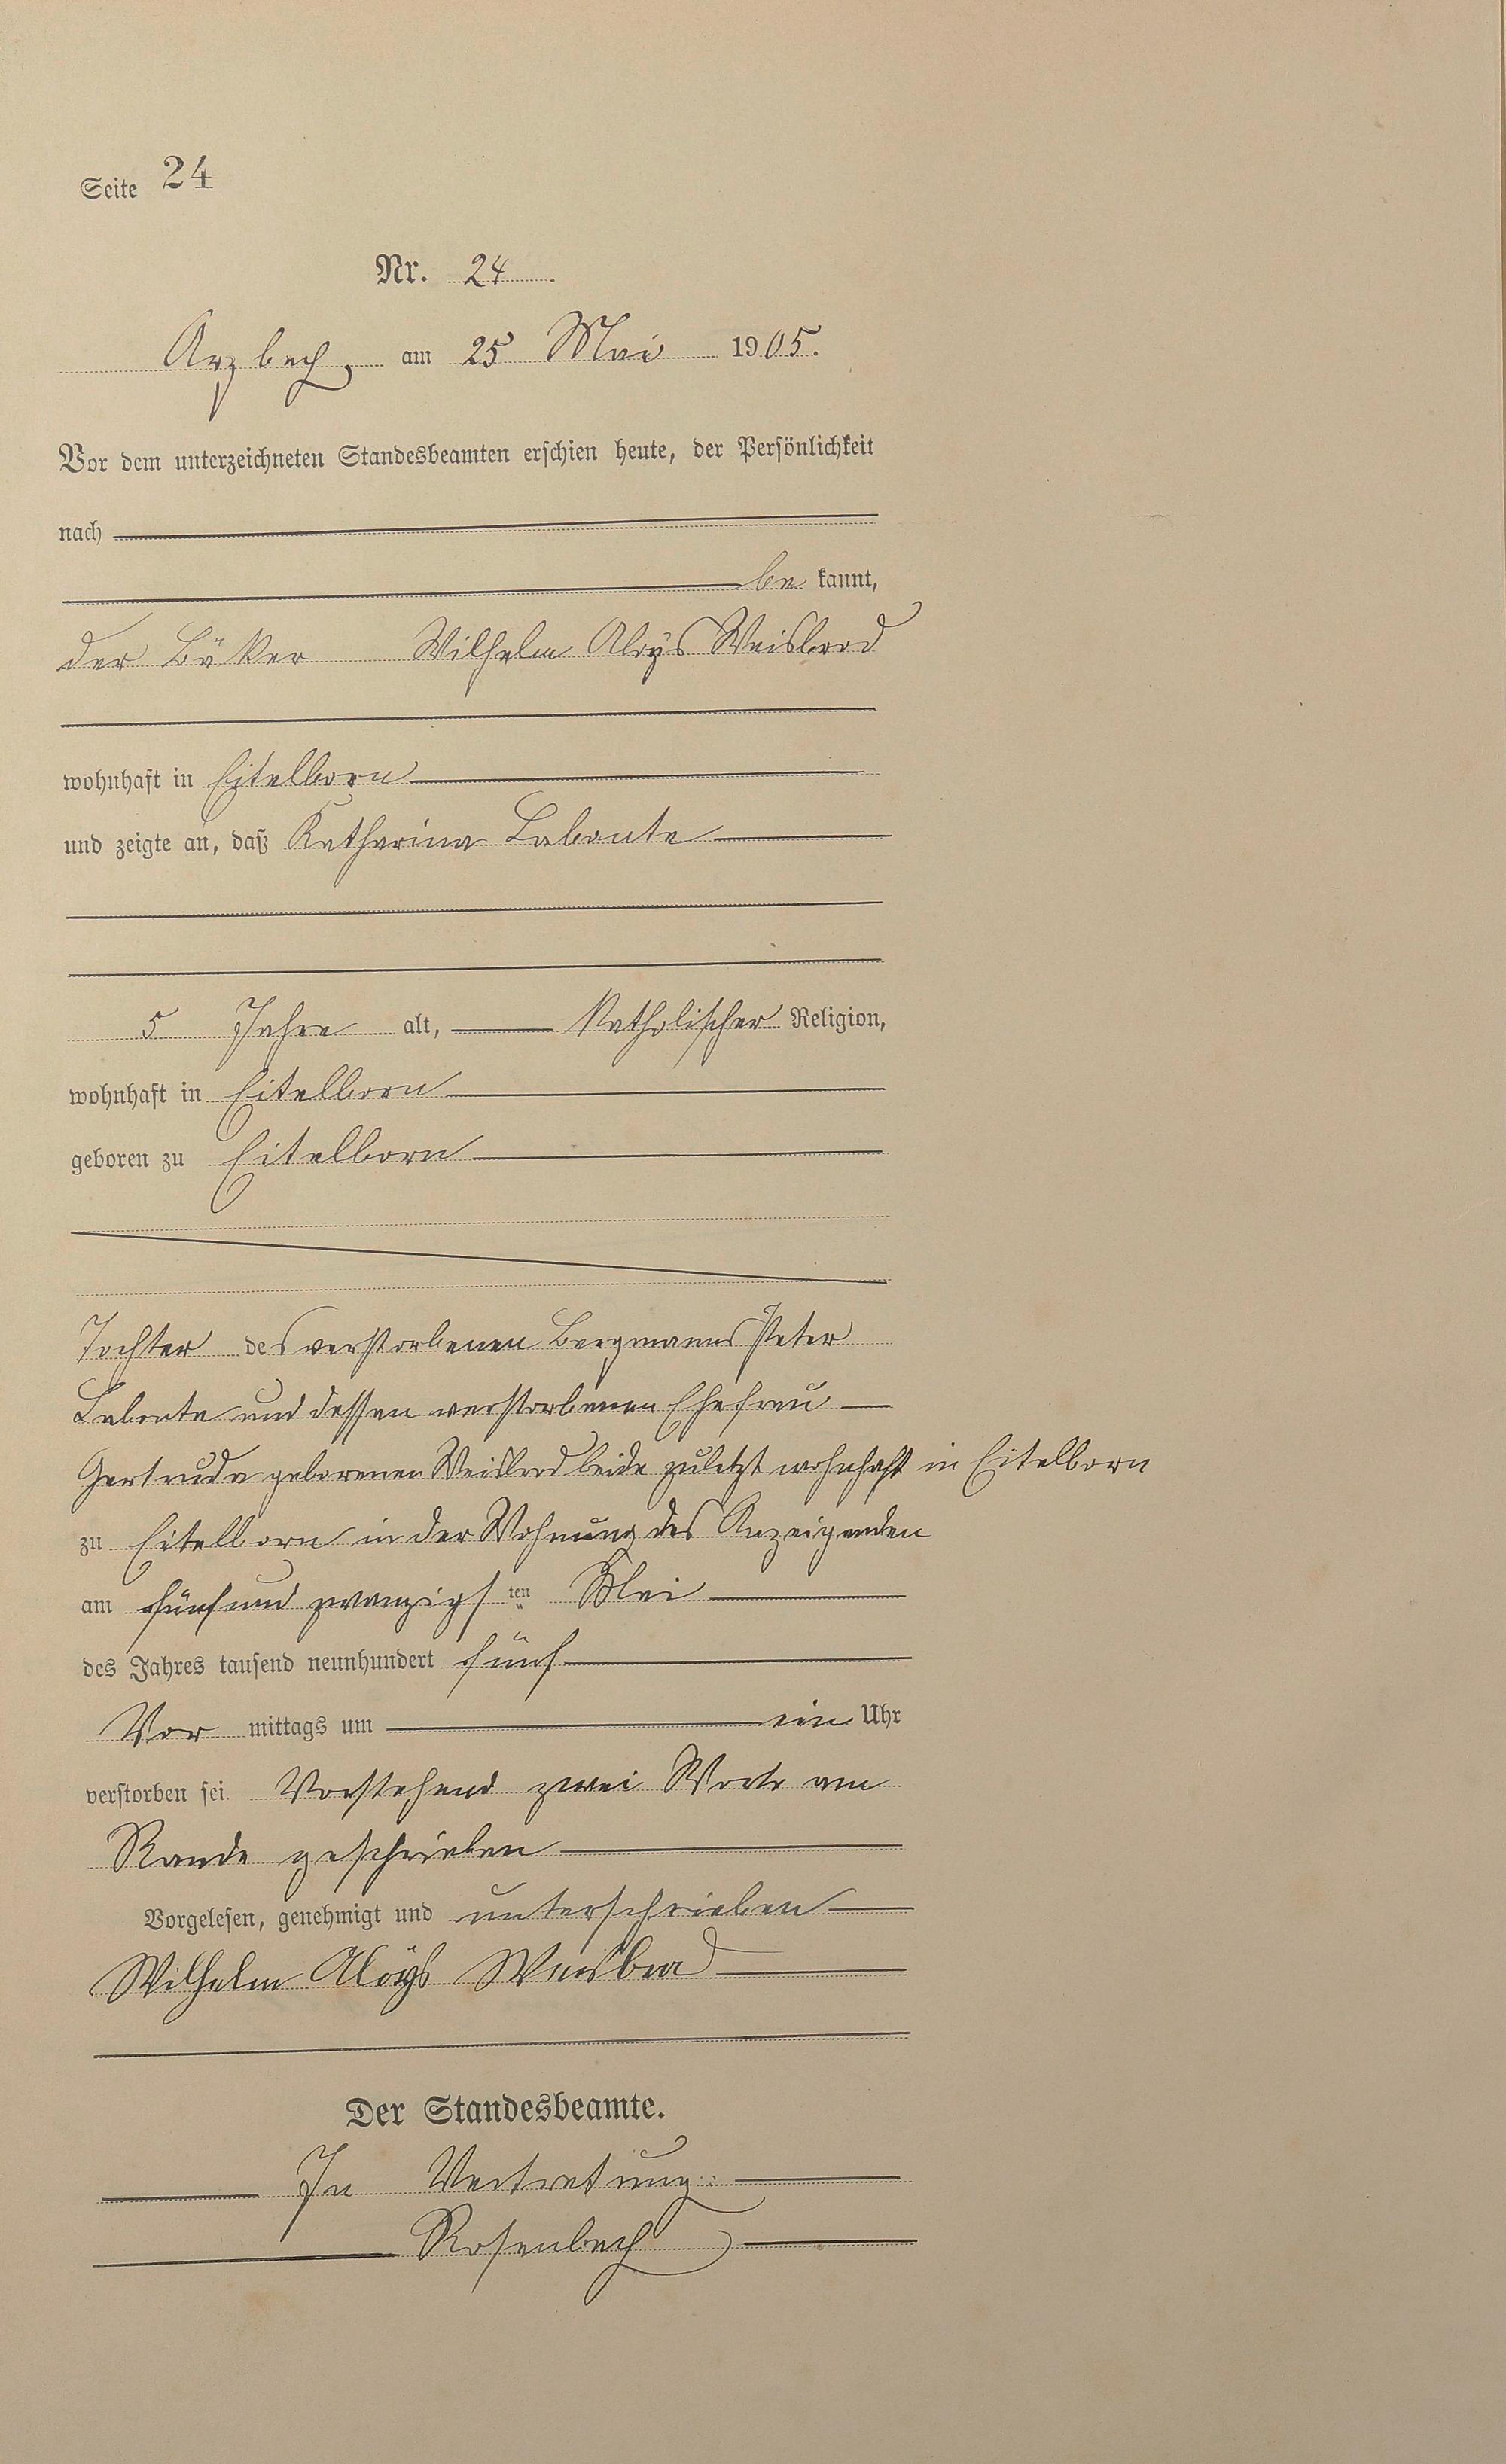 Seite 24
Nr. 24.
Arzbach, am 25 Mai 1905.
Vor dem unterzeichneten Standesbeamten erschien heute, der Persönlichkeit
nach
be kannt,
der Bäker Wilhelm Aloys Weisbrod
wohnhaft in Eitelborn
und zeigte an, daß Katharina Labonte
5 Jahre alt, Katholischer Religion,
wohnhaft in Eitelborn
geboren zu Eitelborn
Tochter des verstorbenen Bergmanns Peter
Labonte und dessen verstorbenen Ehefrau
Gertruda geborenen Weisbrod beide zuletzt wohnhaft in Eitelborn
zu Eitelborn in der Wohnung des Anzeigenden
am fünfundzwanzigsten Mai
des Jahres tausend neunhundert fünf
Vor mittags um ein Uhr
verstorben sei. Vorstehend zwei Worte am
Rande geschrieben
Vorgelesen, genehmigt und unterschrieben
Wilhelm Aloys Weisbrod
Der Standesbeamte.
In Vertretung:
Rosenbach